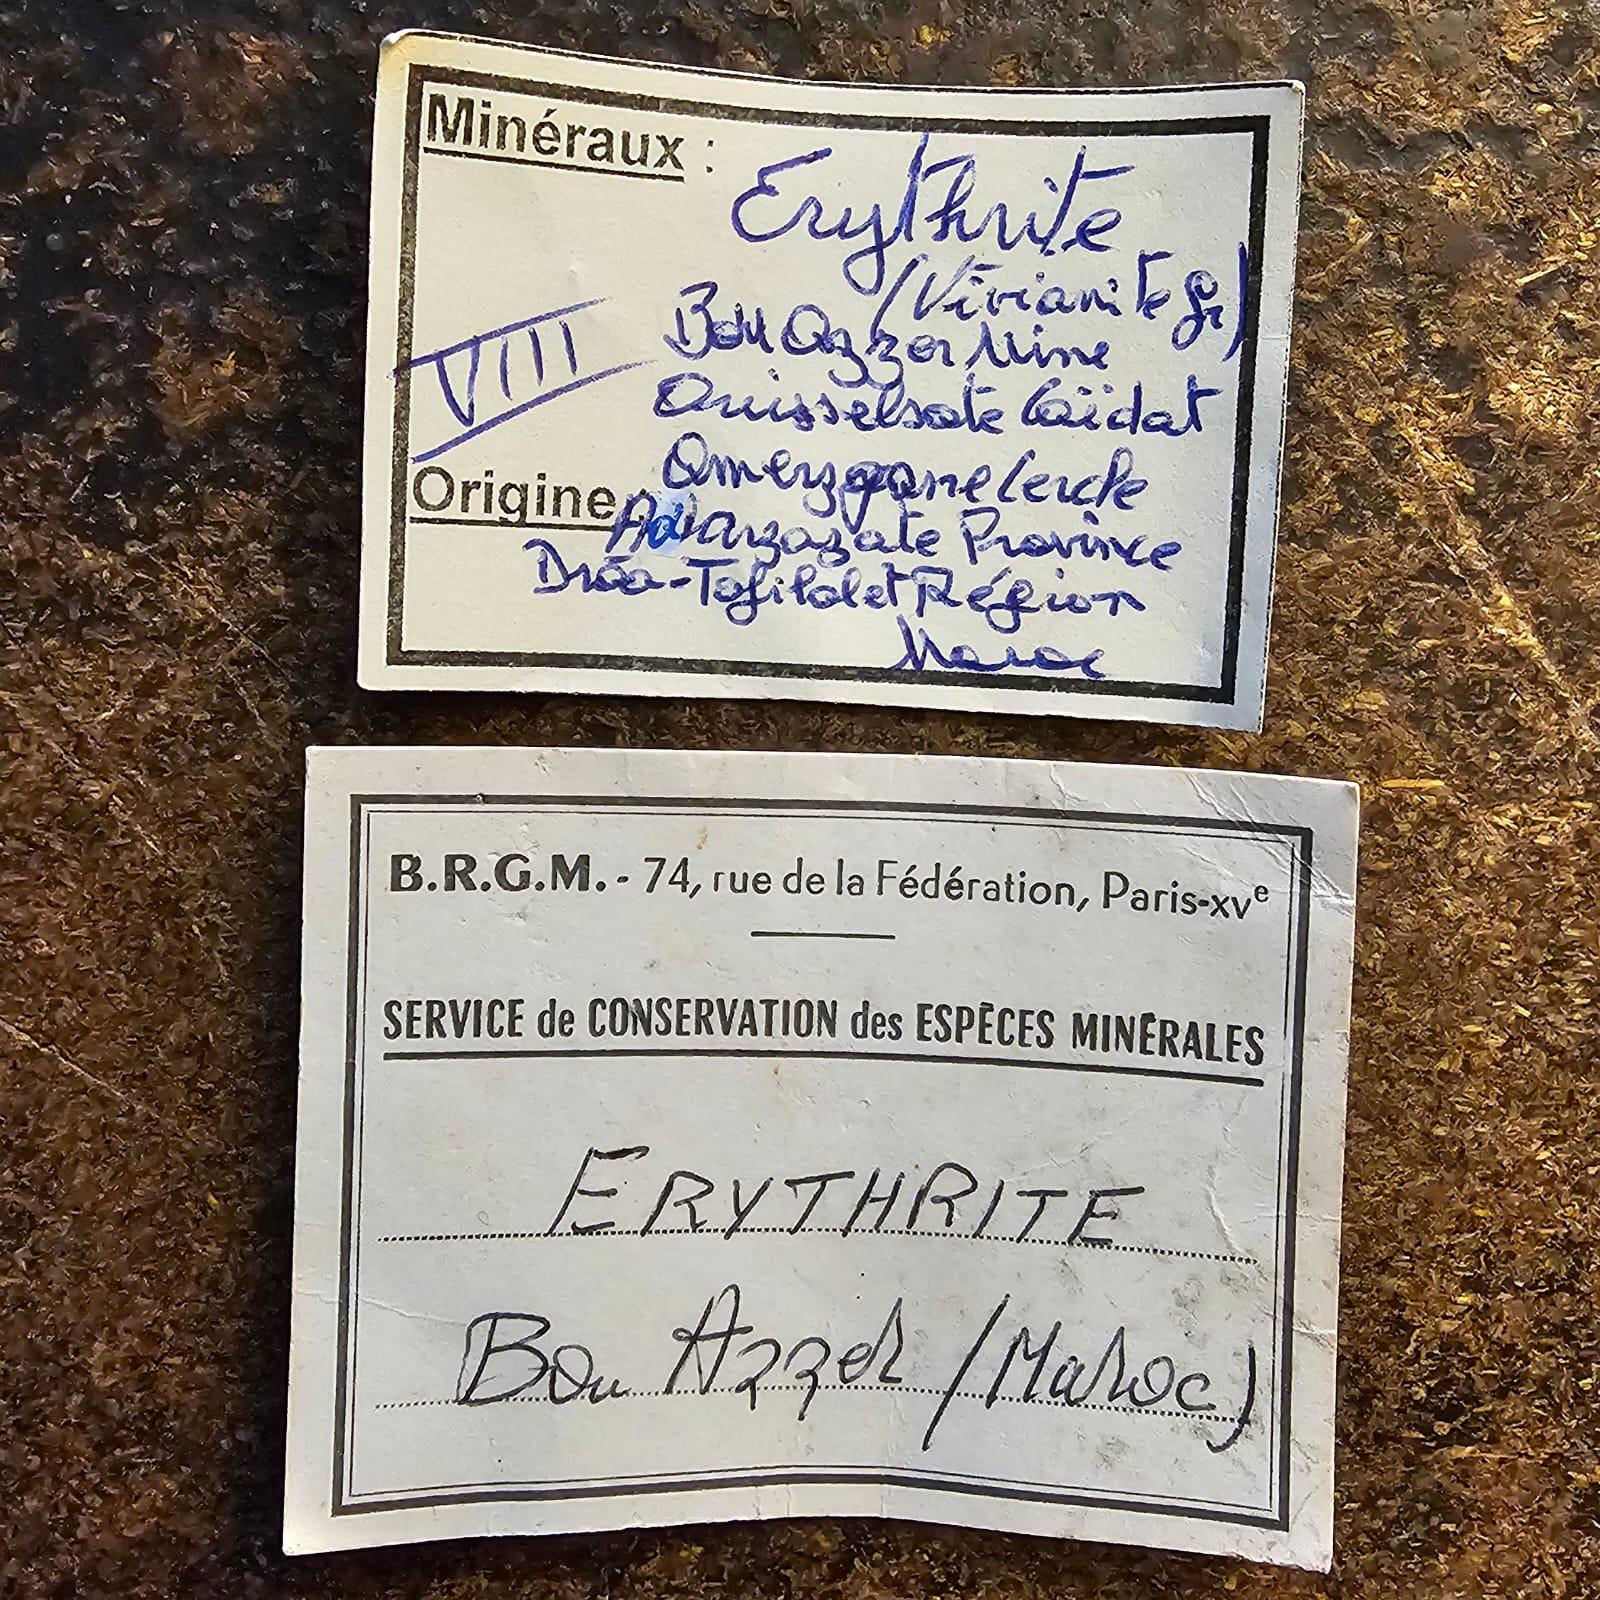 Minéraux :
Erythrite
(Vivianite gr)
Bou Azzer Mine
VIII
Ouisselsate Caïdat
Amerzgane Cercle
Origine
Province
Drâa-Tafilalet Région
Maroc
B.R.G.M. - 74, rue de la Fédération, Paris-XVe
SERVICE de CONSERVATION des ESPÈCES MINÉRALES
ERYTHRITE
Bou Azzer (Maroc)